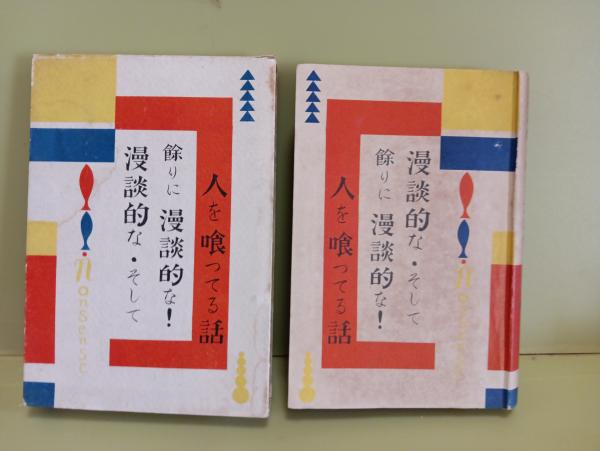 人を喰つてる話
餘りに 漫談的な!
漫談的な・そして
nonsense
漫談的な・そして
餘りに 漫談的な!
人を喰つてる話
nonsense